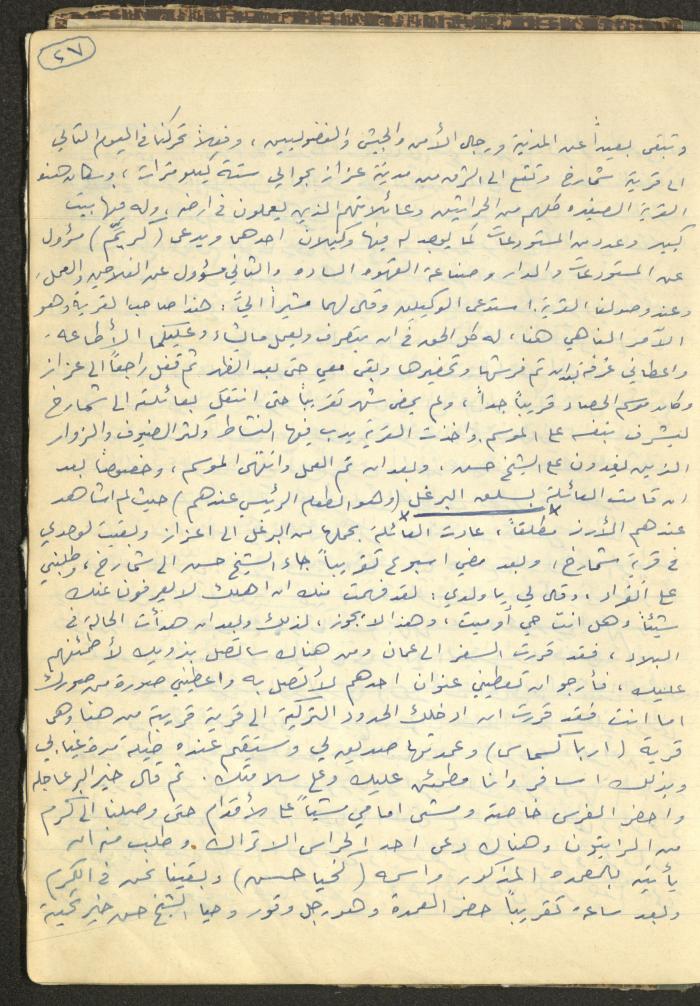 ٢٧
وتبقى بعيداً عن المدنية ورجال الأمن والجيش والفضوليين، وفعلاً تحركنا في اليوم التالي
الى قرية شمارخ وتقع الى الشرق من مدينة عزاز بحوالي ستة كيلو مترات، وسكان هذه
القرية الصغيرة كلهم من الحراثين وعائلاتهم الذين يعملون في ارضه، وله فيها بيت
كبير وعدد من المستودعات كما يوجد له فيها وكيلان احدهم ويدعى (كريّم) مسؤول
عن المستودعات والدار وصناعة القهوه الساده والثاني مسؤول عن الفلاحين والعمل،
وعند وصولنا القرية استدعى الوكيلين وقال لهما مشيراً اليّ: هذا صاحب القرية وهو
الآمر الناهي هنا، له كل الحق في ان يتصرف ويعمل ما يشاء وعليكما الأطاعه.
واعطاني غرفة بعد ان تم فرشها وتحضيرها وبقى معي حتى بعد الظهر ثم قفل راجعاً الى عزاز
وكان موسم الحصاد قريباً جداً، ولم يمض شهر تقريباً حتى انتقل بعائلته الى شمارخ
ليشرف بنفسه على الموسم، واخذت القرية يدب فيها النشاط وكثر الضيوف والزوار
الذين يفدون على الشيخ حسن. وبعد ان تم العمل وانتهى الموسم، وخصوصاً بعد
ان قامت العائلة بسلق البرغل (وهو الطعام الرئيسي عندهم) حيث لم اشاهد
عندهم الأرز مطلقاً، عادت العائلة بحملها من البرغل الى اعزاز وبقيت لوحدي
في قرية شمارخ، وبعد مضي اسبوع تقريباً جاء الشيخ حسن الى شمارخ، وطلبني
على انفراد، وقال لي يا ولدي: لقد فهمت منك ان اهلك لا يعرفون عنك
شيئاً وهل انت حي أو ميت، وهذا لا يجوز، لذلك وبعد ان هدأت الحالة في
البلاد، فقد قررت السفر الى عمان ومن هناك سأتصل بذويك لأطمئنهم
عليك، فأرجو ان تعطيني عنوان احدهم لأتصل به واعطيني صورة من صورك
اما انت فقد قررت ان ادخلك الحدود التركية الى قرية قريبة من هنا وهي
قرية (اربا كسماس) وعمدتها صديق لي وستقيم عنده طيلة مدة غيابي
وبذلك اسافر وانا مطمئن عليك وعلى سلامتك. ثم قال خير البر عاجله
واحضر الفرس خاصته ومشى امامي مشياً على الأقدام حتى وصلنا الى كرم
من الزيتون وهناك دعى احد الحراس الاتراك. وطلب منه ان
يأتيه بالعمدة المذكور واسمه (كخيا حسن) وبقينا نحن في الكرم
وبعد ساعة تقريباً حضر العمدة وهو رجل وقور وحيا الشيخ حسن خير تحية